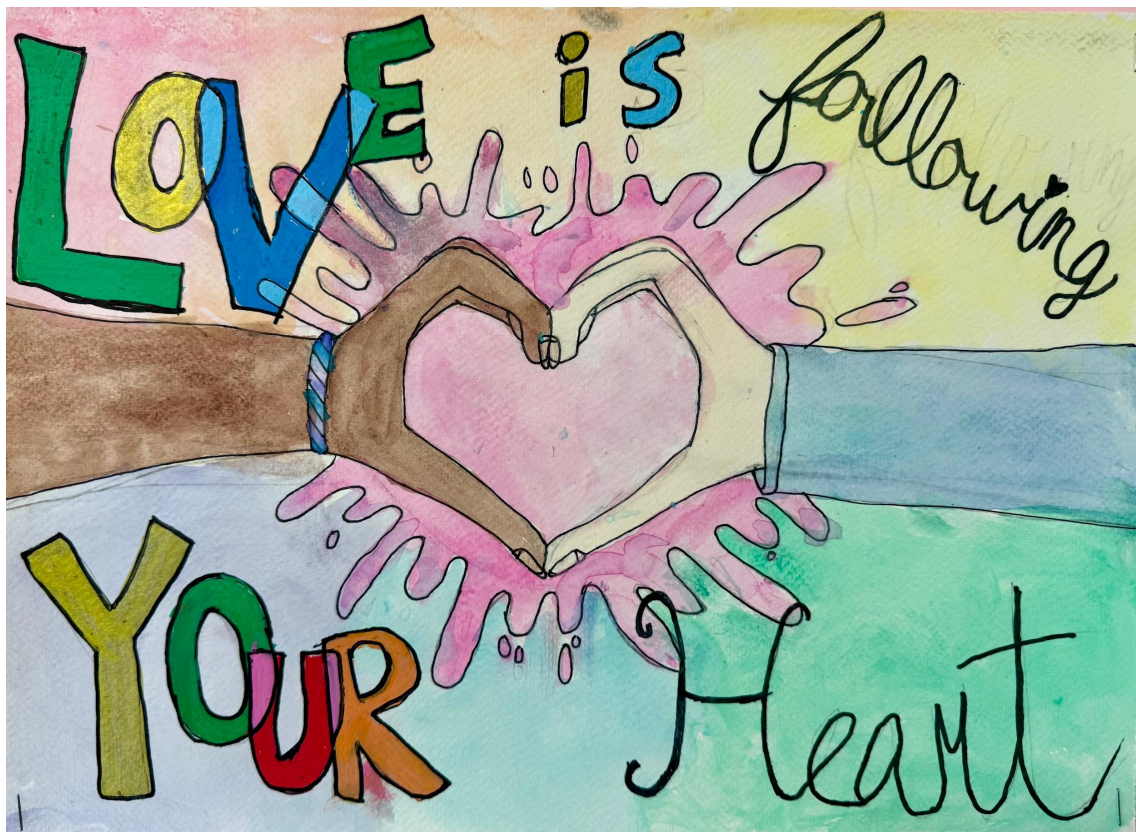 LOVE is following
YOUR Heart